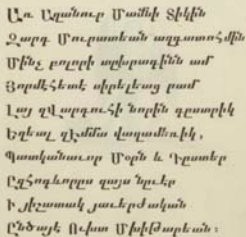 Առ Ազանուր Մամնի Տիկին
Զարդ Մուրատեան ազգատոհմին
Մինչ բոլորի տխրագինն ամ
Յորմէհետէ սիրելեաց բամ
Լայ զՎարդուհի նորին դստրիկ
Եղեալ զխմմա վաղամեռիկ,
Պատկանաւոր Մօրն և Դստեր
Ըզհոգևորըս զայս նուէր
Ի յիշատակ յաւերժական
Ընծայէ Ուխտ Մխիթարեան։